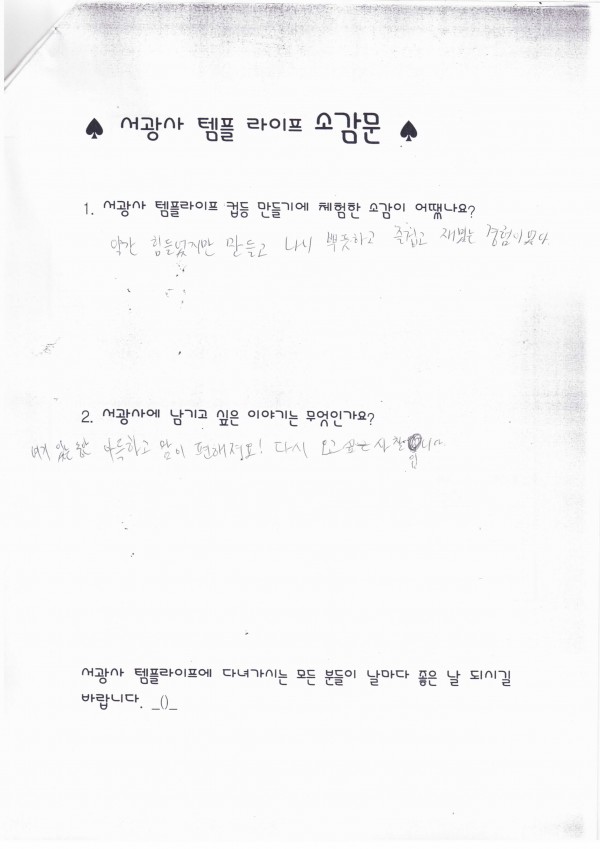 ♠ 서광사 템플 라이프 소감문 ♠
1. 서광사 템플라이프 컵등 만들기에 체험한 소감이 어땠나요?
약간 힘들었지만 만들고 나니 뿌듯하고 즐겁고 재밌는 경험이었다.
2. 서광사에 남기고 싶은 이야기는 무엇인가요?
아득하고 맘이 편해져요! 다시 오고 싶은 사찰입니다
서광사 템플라이프에 다녀가시는 모든 분들이 날마다 좋은 날 되시길
바랍니다. _()_